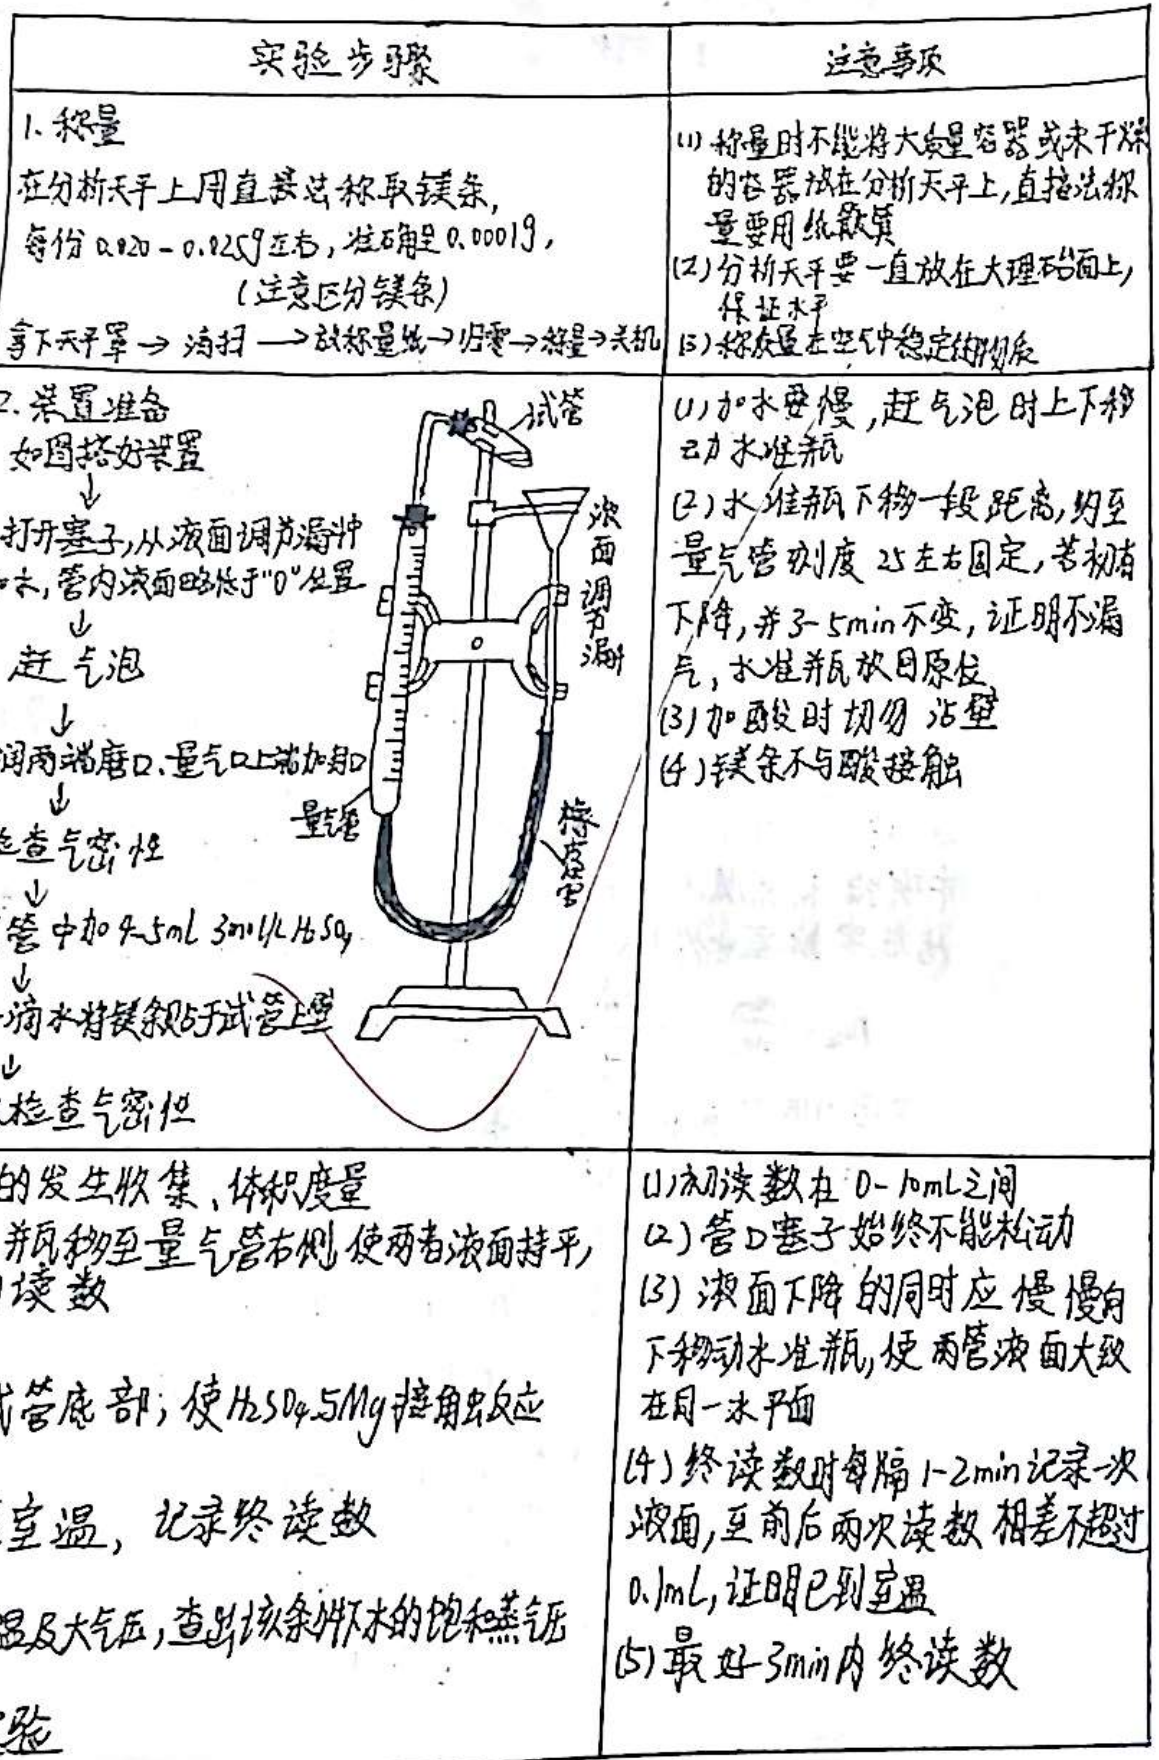 实验步骤
注意事项
1. 称量
在分析天平上用直接法称取镁条,
每份 0.020-0.025g左右, 准确至0.0001g,
(注意区分镁条)
拿下天平罩→清扫→放称量纸→归零→称量→关机
(1) 称量时不能将大质量容器或未干燥
的容器放在分析天平上,直接法称
量要用纸
(2) 分析天平要一直放在大理石台面上,
保证水平
(3) 称在空气中稳定的物质
2. 装置准备
如图搭好装置
↓
打开塞子,从液面调节漏斗
加水,管内液面略低于"0"位置
↓
赶气泡
↓
润两端磨口、量气口上端加
↓
检查气密性
↓
管中加4-5mL 3mol/L H₂SO₄
↓
滴水将镁条贴于试管上壁
↓
检查气密性
试管
液面调节漏斗
量气管
橡皮管
(1) 加水要慢,赶气泡时上下移
动水准瓶
(2) 水准瓶下移一段距离,约至
量气管刻度 25左右固定,若初有
下降,并3-5min不变,证明不漏
气, 水准瓶放回原位
(3) 加酸时切勿沾壁
(4) 镁条不与酸接触
的发生收集、体积度量
瓶移至量气管右侧,使两者液面持平,
读数
试管底部; 使H₂SO₄与Mg接触反应
室温, 记录终读数
温及大气压,查出该条件下水的饱和蒸气压
验
(1) 初读数在 0-10mL之间
(2) 管口塞子始终不能松动
(3) 液面下降的同时应慢慢向
下移动水准瓶,使两管液面大致
在同一水平面
(4) 终读数时每隔1-2min记录一次
液面,至前后两次读数相差不超过
0.1mL,证明已到室温
(5) 最好3min内终读数